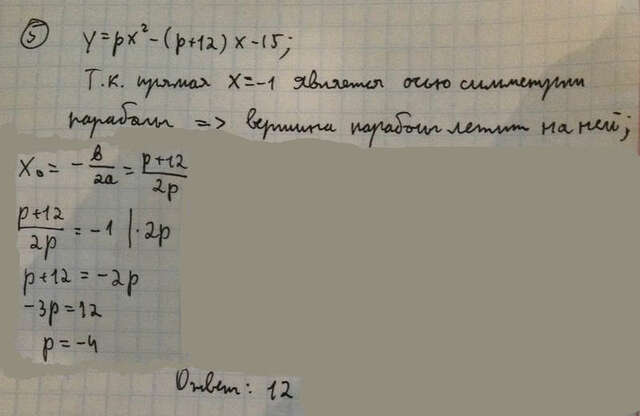 5 y=px²-(p+12)x-15;
Т.к. прямая x=-1 является осью симметрии
параболы => вершина параболы лежит на ней;
x₀ = -в/2a = p+12/2p
p+12/2p = -1 |·2p
p+12 = -2p
-3p=12
p=-4
Ответ: 12